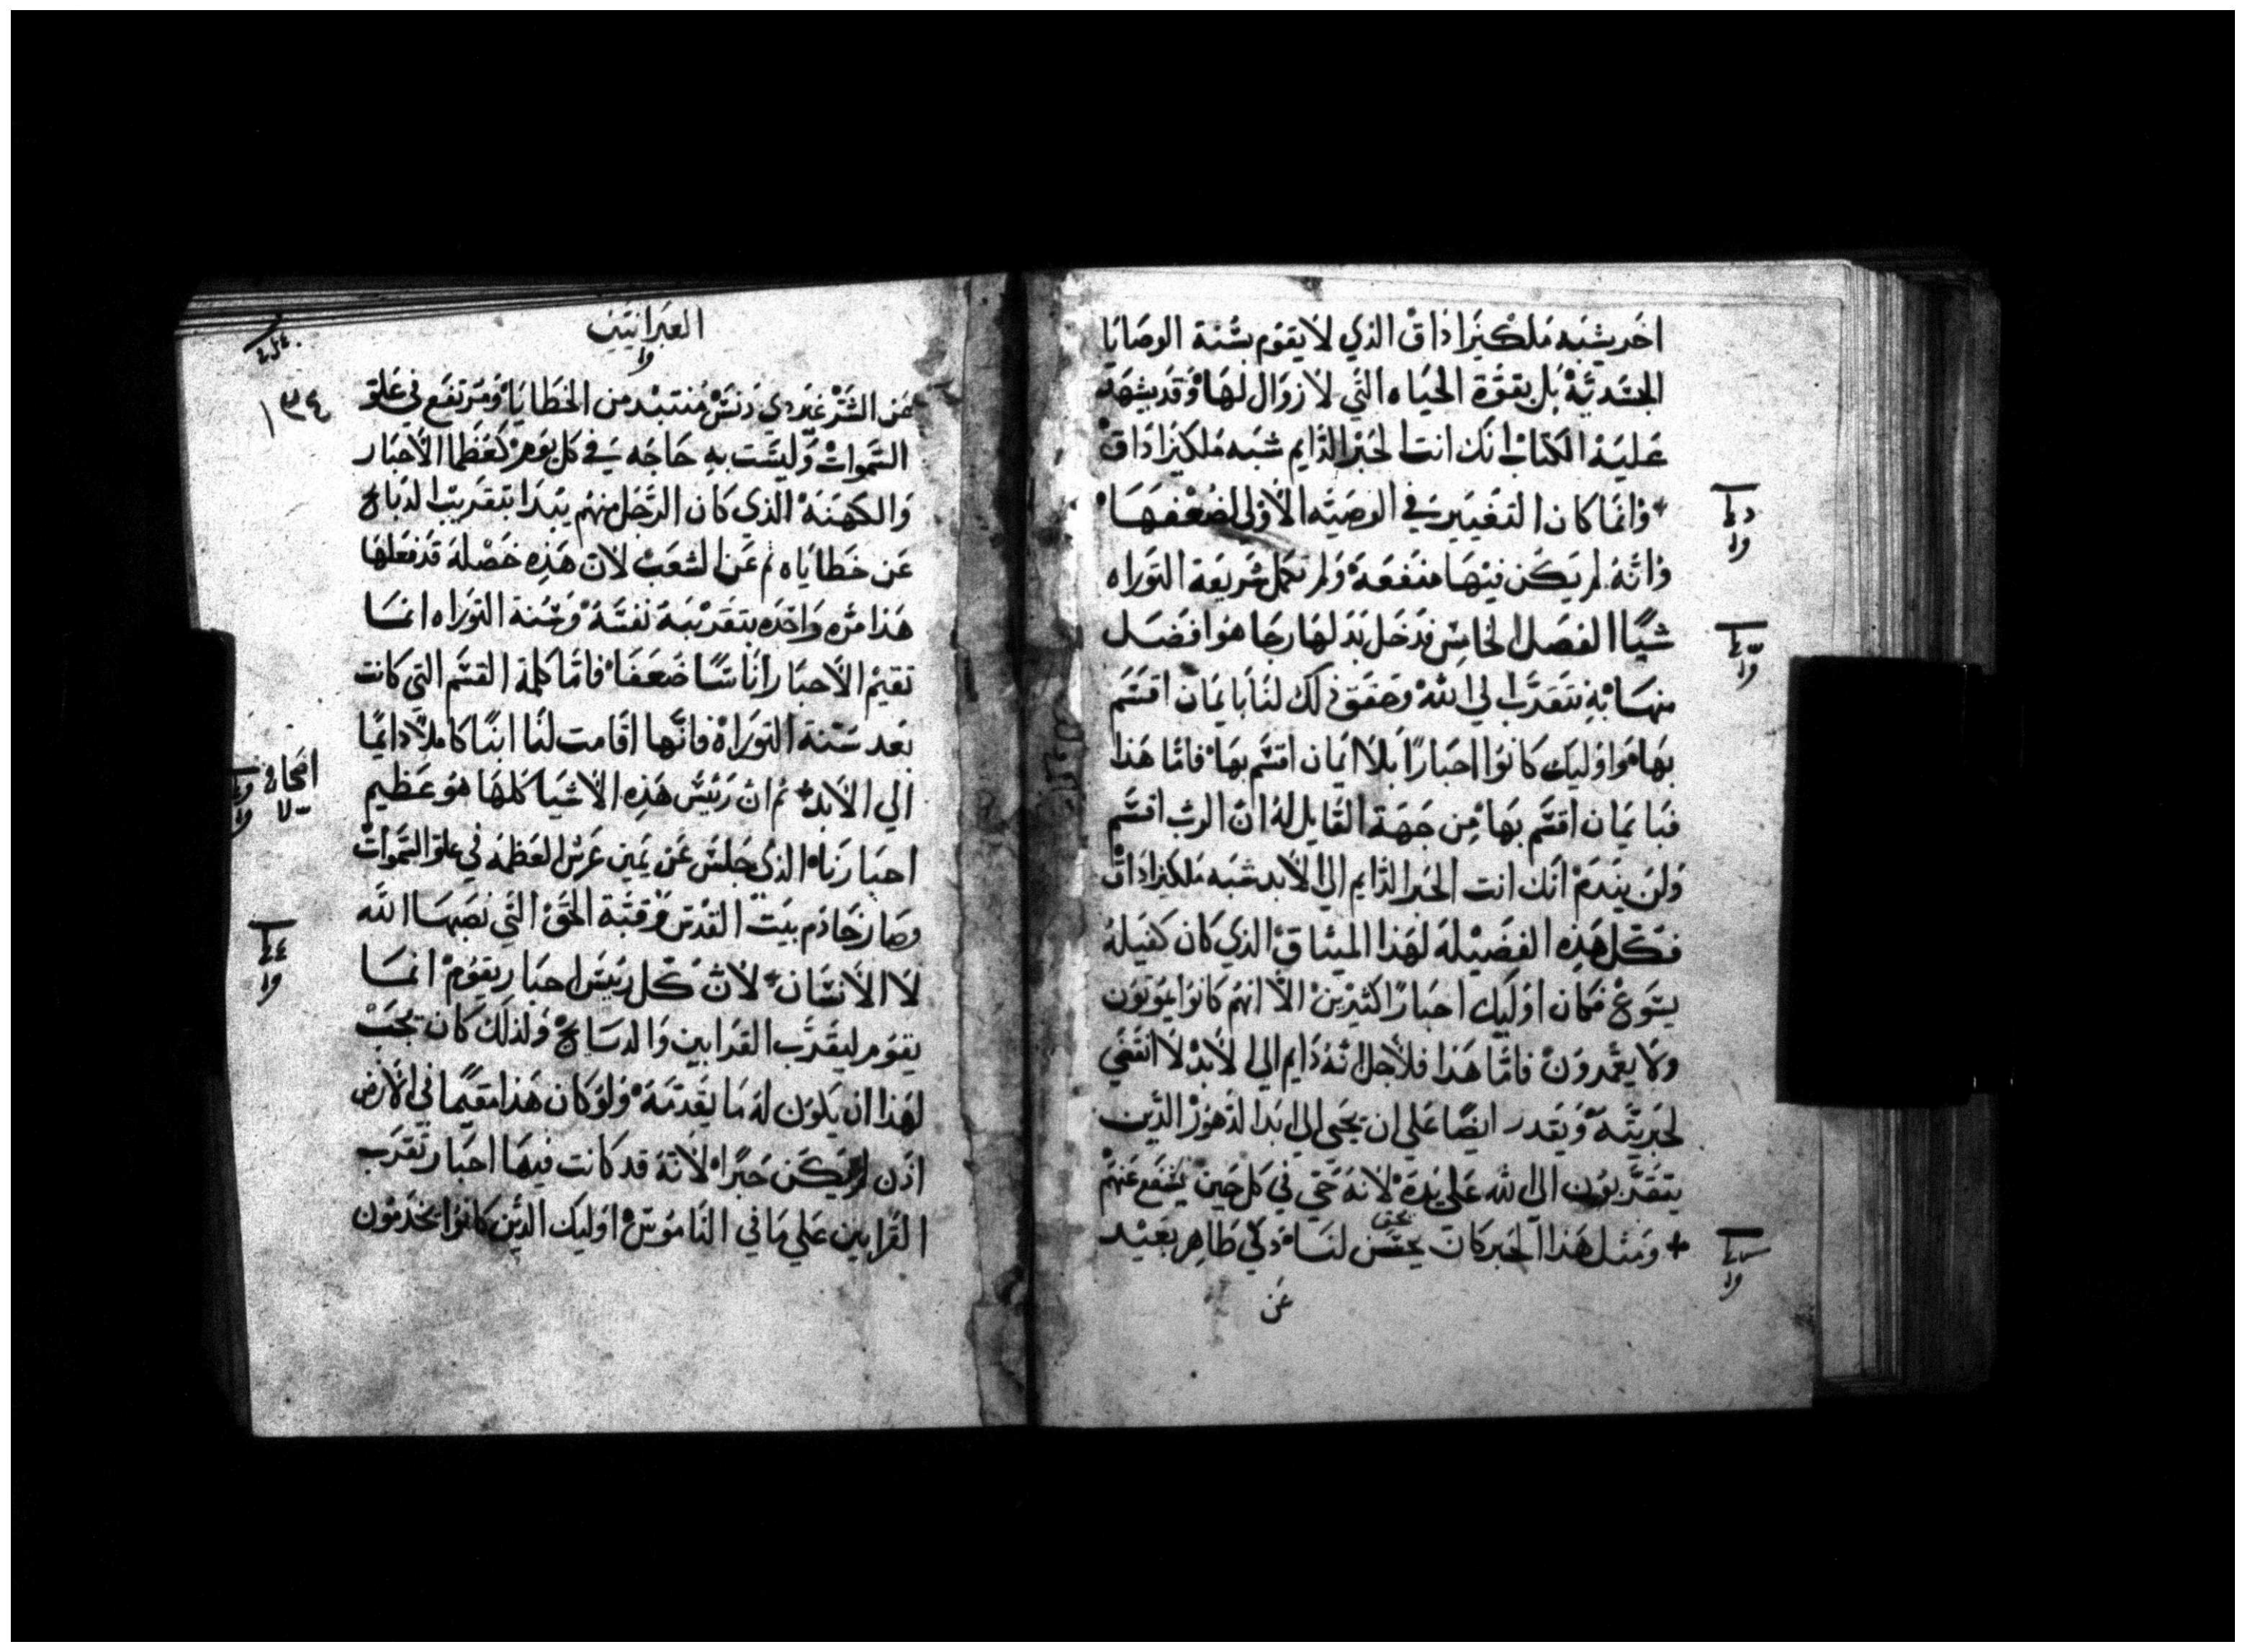 اخر يشبه ملكيزاداق الذي لا يقوم بسنة الوصايا
الجسدية بل بقوة الحياه التي لا زوال لها وقد يشهد
عليه الكتاب انك انت الحبر الدايم شبه ملكيزاداق
وانما كان التغيير في الوصيه الاولي لضعفها
وانه لم يكن فيها منفعة ولم تكمل شريعة التوراه
شيًا الفصل الخامس فدخل بدلها رجا هوا فضل
منها به نتقرب الي الله وحقق ذلك لنا بايمان اقسم
بها واوليك كانوا احبارًا بلا ايمان اقسم بها فاما هذا
فبايمان اقسم بها من جهة القايل له ان الرب اقسم
ولن يندم انك انت الحبر الدايم الي الابد شبه ملكيزاداق
فكل هذه الفضيلة لهذا الميثاق الذي كان كفيله
يسوع فكان اوليك احبارًا كثيرين الا انهم كانوا يموتون
ولا يعمرون فاما هذا فلاجل انه دايم الي الابد لا انقضي
لحبريته ويقدر ايضًا علي ان يحيي الي ابد الدهور الذين
يتقربون الي الله علي يده لانه حي في كل حين يشفع عنهم
ومثل هذا الحبر كان يحسن لنا ذكي طاهر بعيد
عن
العبرانيين
١٣٤
عن الشر غير ذي دنس منتبد من الخطايا ومرتفع في علو
السموات وليست به حاجه في كل يوم كعظما الاحبار
والكهنة الذي كان الرجل منهم يبدا بتقريب الدبايح
عن خطاياه ثم عن الشعب لان هذه خصلة قد فعلها
هذا مره واحده بتقديمه نفسه وسنة التوراه انما
تقيم الاحبار اناسًا ضعفا فاما كلمة القسم التي كانت
بعد سنة التوراة فانها اقامت لنا ابنًا كاملًا دايمًا
الي الابد ثم ان رئيس هذه الاشيا كلها هو عظيم
اصحاح
احبارنا الذي جلس عن يمين عرش العظمه في علو السموات
وصار خادم بيت القدس وقبة الحق التي نصبها الله
لا الانسان لان كل رئيس احبار يقوم انما
يقوم ليقرب القرابين والدبايح ولذلك كان يجب
لهذا ان يكون له ما يقدمه ولو كان هذا مقيمًا في الارض
اذن لم يكن حبرًا لانه قد كانت فيها احبار تقرب
القرابين علي ما في الناموس اوليك الدين كانوا يخدمون